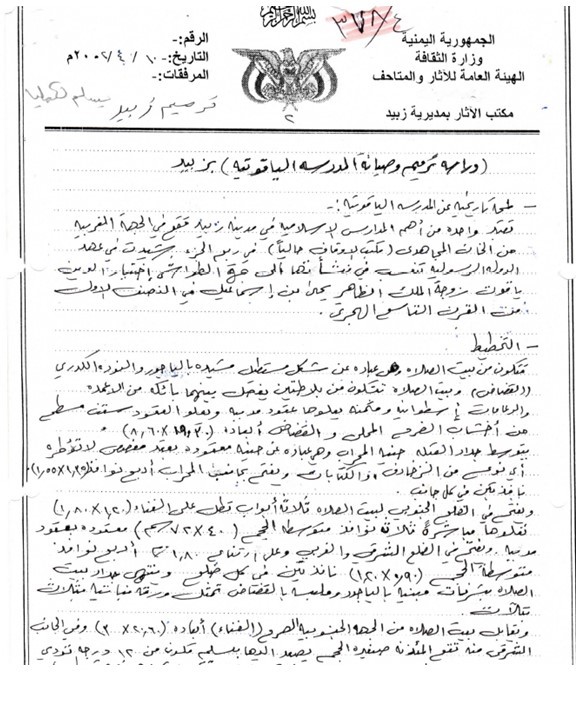 بسم الله الرحمن الرحيم
٣٧٨/٤
الجمهورية اليمنية
وزارة الثقافة
الهيئة العامة للآثار والمتاحف
مكتب الآثار بمديرية زبيد
الرقم:-
التاريخ:- ١٠ / ٤ / ٢٠٠٢م
المرفقات:-
ترميم زبيد
٢
(دراسة ترميم وصيانة المدرسة الياقوتية) بزبيد
- لمحة تاريخية عن المدرسة الياقوتية :-
تعتبر واحدة من أهم المدارس الإسلامية في مدينة زبيد تقع في الجهة الغربية
من الخان المجاهدي (مكتب الأوقاف حالياً) في ربع الجزع شيدت في عهد
الدولة الرسولية تنسب في نشأتها إلى جهة الطواشي اختيار الدين
ياقوت زوجة الملك الظاهر يحيى بن إسماعيل في النصف الأول
من القرن التاسع الهجري.
- التخطيط
تتكون من بيت الصلاة وهي عباره عن شكل مستطيل مشيده بالياجور والنوره الكدري
(القضاض) وبيت الصلاة تتكون من بلاطتين يفصل بينهما بائكه من الأعمده
والدعامات أسطوانية ومثمنه يعلوها عقود مدببه وتعلو العقود سقف مسطح
من أخشاب الطرف المحلي والقضاض أبعاده (١٩,٣٠ X ٨,٦٠)
يتوسط جدار القبله حنيه المحراب وهي عباره عن حنيه معقوده بعقد مفصص لا تؤطره
أي نوع من الزخارف أو الكتابات ويفتح بجانب المحراب أربع نوافذ (١,٢٥ X ١,٥٥)
نافذتين في كل جانب.
ويفتح في الضلع الجنوبي لبيت الصلاه ثلاثة أبواب تطل على الفناء (١,٢٠ X ١,٨٠)
تعلوها مباشرةً ثلاثة نوافذ متوسطة الحجم (٤٠ X ٧٢ سم) معقوده بعقود
مدببه ويفتح في الضلع الشرقي والغربي وعلى ارتفاع ١,٨٠ أربع نوافذ
متوسطة الحجم (٠,٩٠ X ١,٢٠) نافذتين في كل ضلع وينتهي جدار بيت
الصلاه بشرفات مبنية بالياجور وملبسه بالقضاض تمثل ورقه نباتية مثلثات
ثلاث
ويقابل بيت الصلاه من الجهة الجنوبية الصرح (الفناء) أبعاده وفي الجانب
الشرقي منه تقع المئذنه صغيره الحجم يصعد إليها بسلم تكون من ١٢ درجه تؤدي